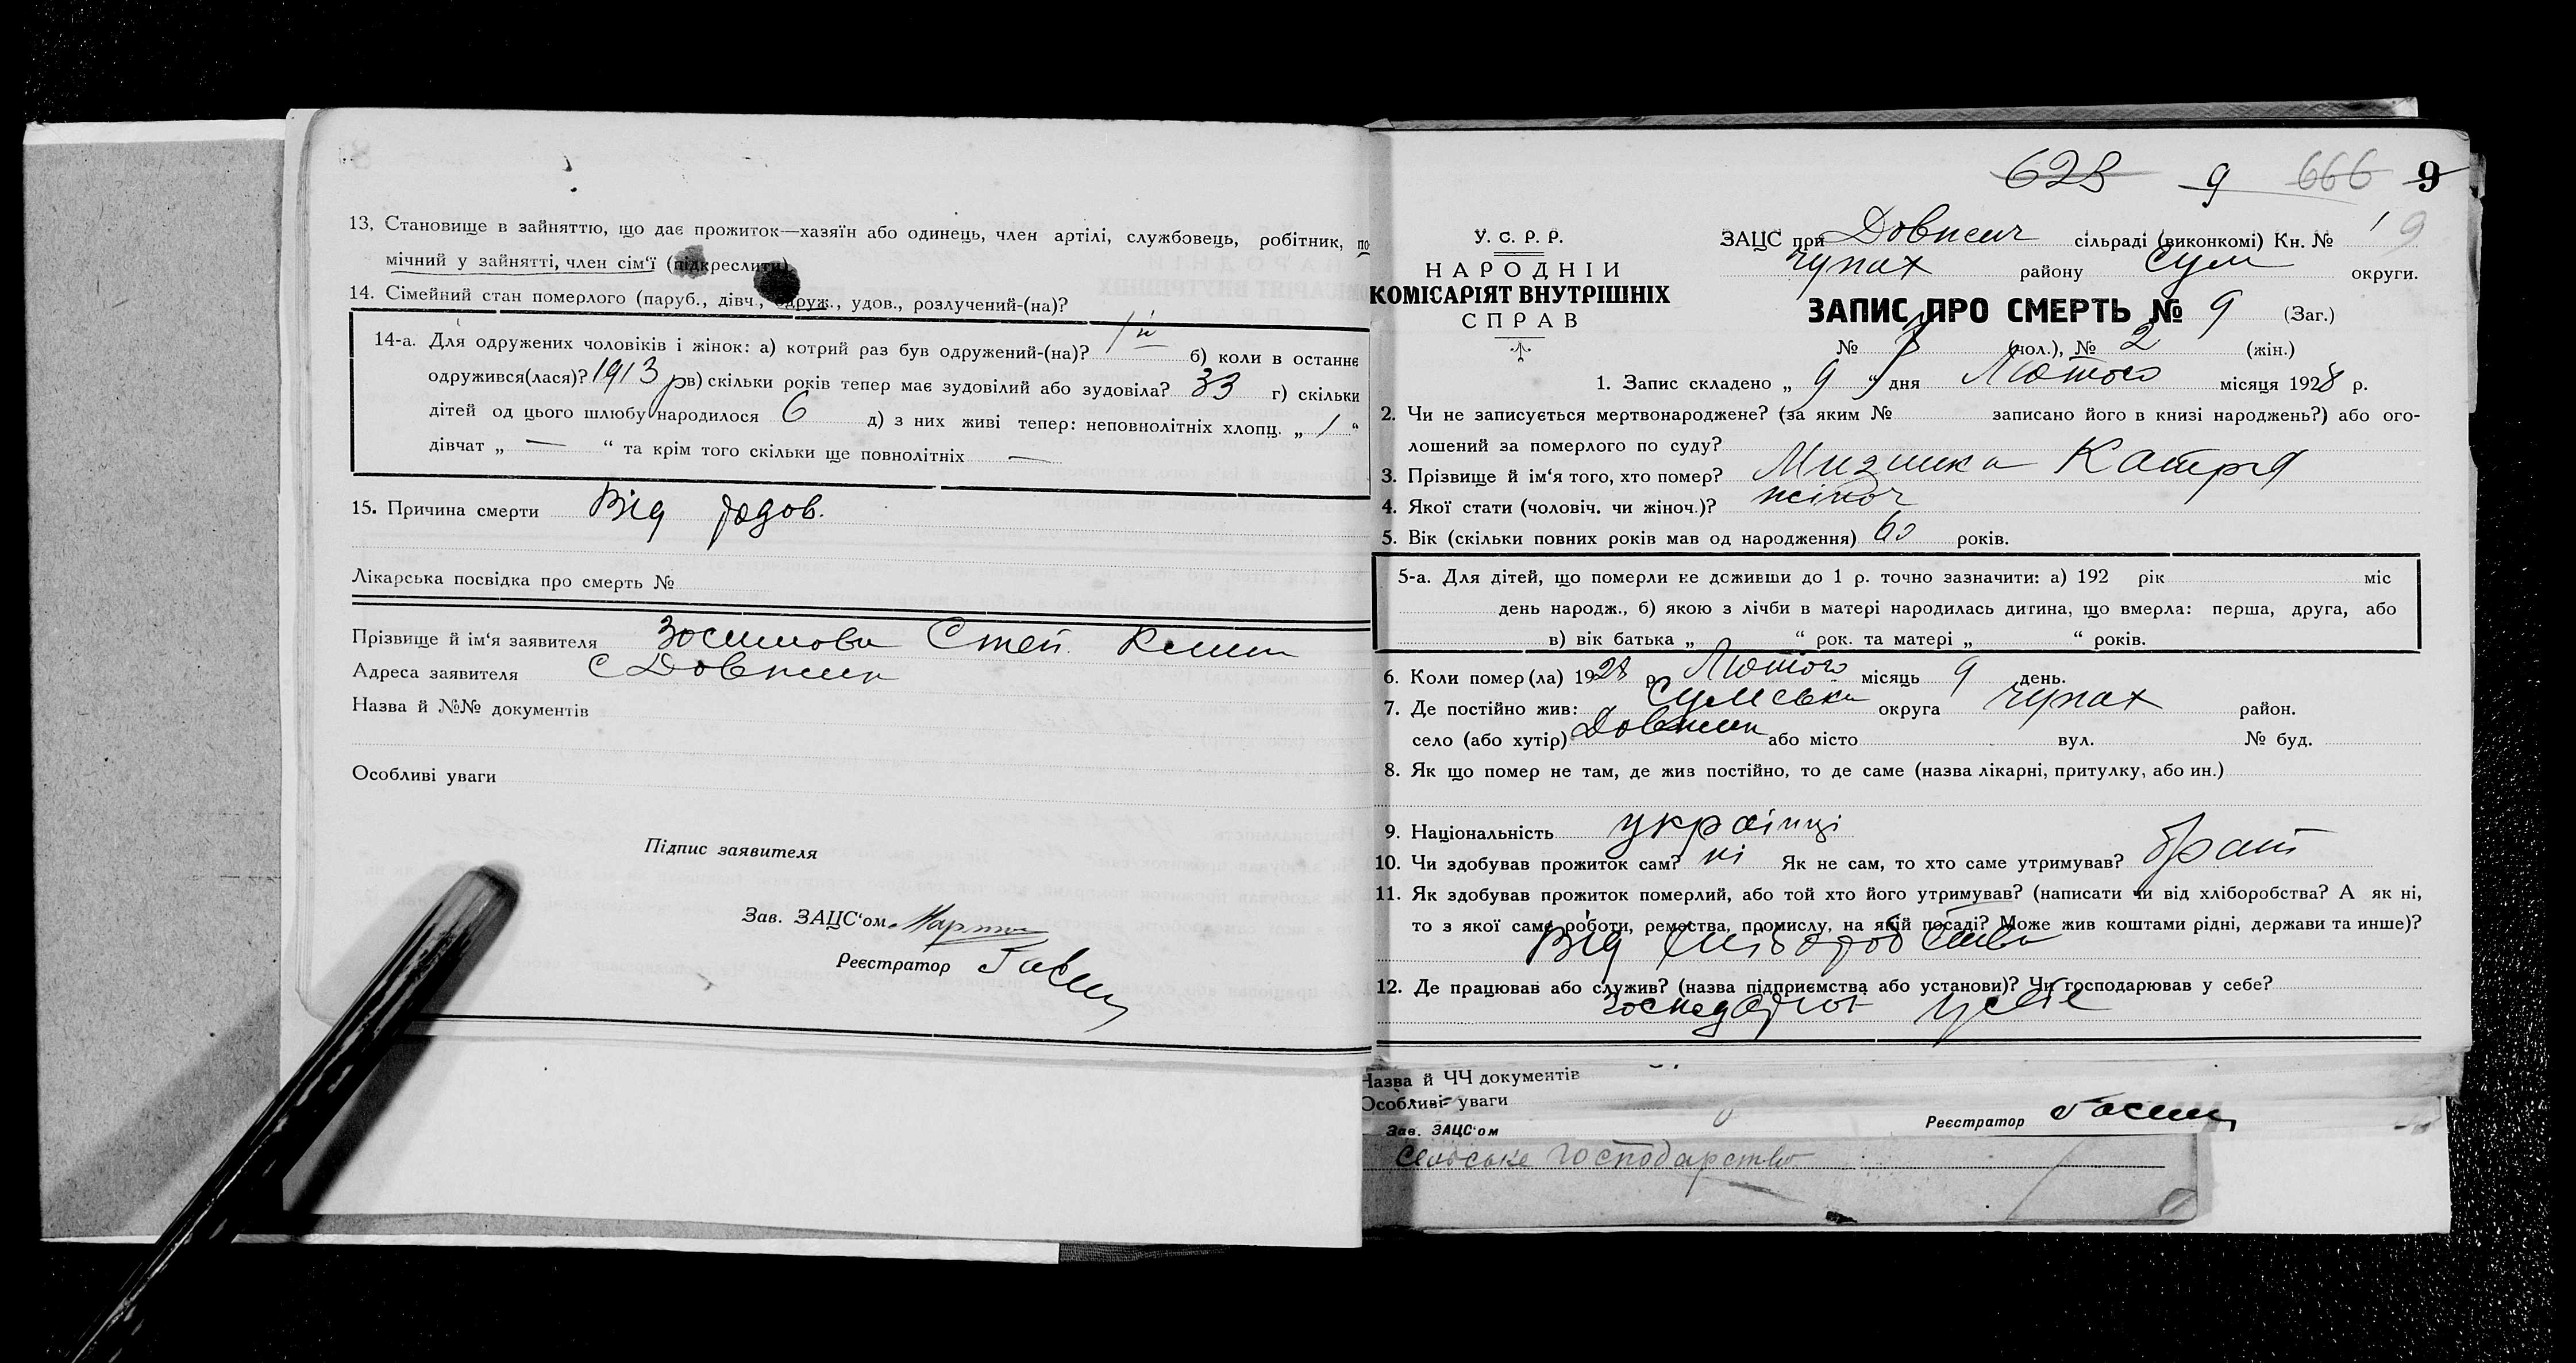 13. Становище в зайняттю, що дає прожиток—хазяїн або одинець, член артілі, службовець, робітник, по
мічний у зайнятті, член сім'ї (підкреслити)
14. Сімейний стан померлого (паруб., дівч., одруж., удов., розлучений-(на)?
14-а. Для одружених чоловіків і жінок: а) котрий раз був одружений-(на)? 1й б) коли в останнє
одружився(лася)? 1913 р в) скільки років тепер має зудовілий або зудовіла? 33 г) скільки
дітей од цього шлюбу народилося 6 д) з них живі тепер: неповнолітніх хлопц. „ 1 "
дівчат „ — " та крім того скільки ще повнолітніх —
15. Причина смерти Від
Лікарська посвідка про смерть №
Прізвище й ім'я заявителя
Адреса заявителя с Довжик
Назва й №№ документів
Особливі уваги
Підпис заявителя
Зав. ЗАЦС'ом
Реєстратор
628 9 666 9
У. С. Р. Р.
НАРОДНІЙ
КОМІСАРІЯТ ВНУТРІШНІХ
СПРАВ
ЗАЦС при сільраді (виконкомі) Кн. № 1 9
Чупах району Сум округи.
ЗАПИС ПРО СМЕРТЬ № 9 (Заг.)
№ 7 (чол.), № 2 (жін.)
1. Запис складено „ 9 " дня Лютого місяця 1928 р.
2. Чи не записується мертвонароджене? (за яким № записано його в книзі народжень?) або ого-
лошений за померлого по суду?
3. Прізвище й ім'я того, хто помер? Катря
4. Якої стати (чоловіч. чи жіноч.)? жіноч
5. Вік (скільки повних років мав од народження) 60 років.
5-а. Для дітей, що померли не доживши до 1 р. точно зазначити: а) 192 рік міс
день народж., б) якою з лічби в матері народилась дитина, що вмерла: перша, друга, або
в) вік батька „ " рок. та матері „ " років.
6. Коли помер(ла) 1928 р Лютого місяць 9 день.
7. Де постійно жив: Сумська округа Чупах район.
село (або хутір) Довжик або місто вул. № буд.
8. Як що помер не там, де жив постійно, то де саме (назва лікарні, притулку, або ин.)
9. Національність україн­ці
10. Чи здобував прожиток сам? ні Як не сам, то хто саме утримував? брат
11. Як здобував прожиток померлий, або той хто його утримував? (написати чи від хліборобства? А як ні,
то з якої саме роботи, ремества, промислу, на якій посаді? Може жив коштами рідні, держави та инше)?
Від хліборобства
12. Де працював або служив? (назва підприємства або установи)? Чи господарював у себе?
у себе
Назва й ЧЧ документів
Особливі уваги
Зав. ЗАЦС'ом Реєстратор
Сельське господарство